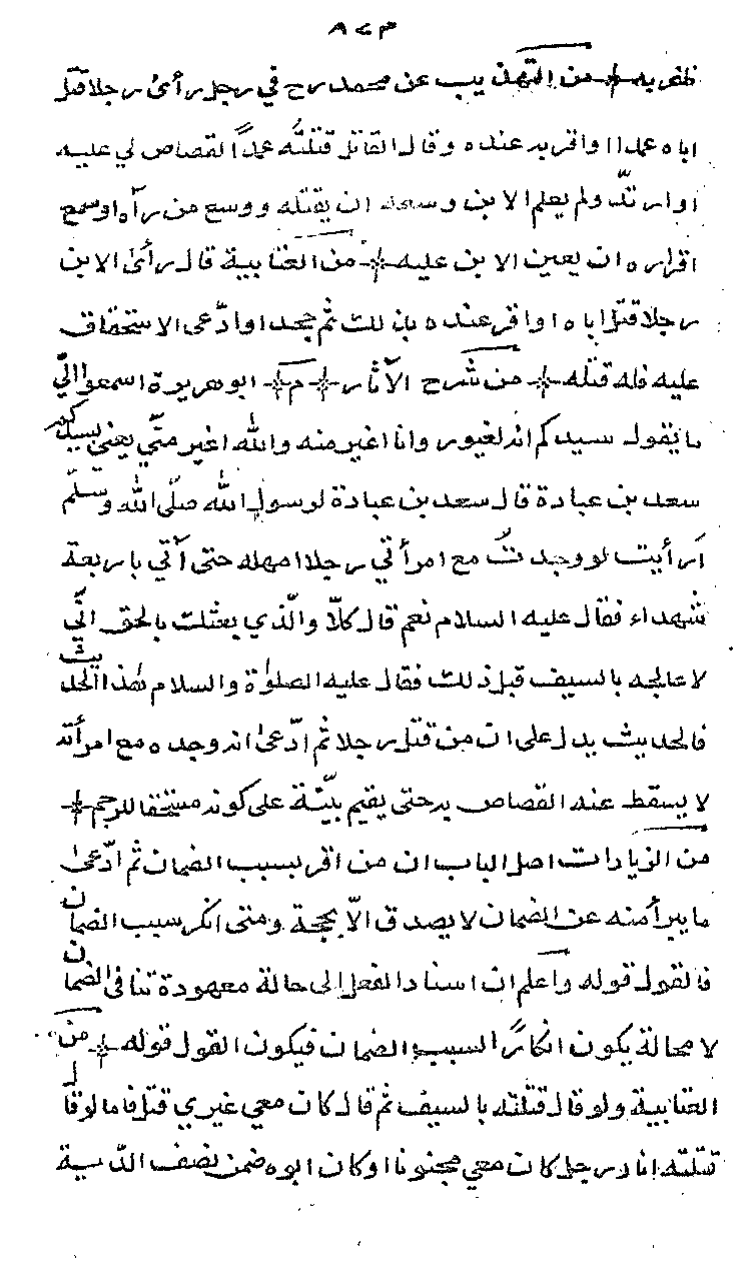 ٨٢٣
ظفر به من التهذيب عن محمد رح في رجل رأى رجلا قتل
اباه عمدا او اقر به عنده وقال القاتل قتلته عمدًا لقصاص لي عليه
او ارتدّ ولم يعلم الابن وسعه ان يقتله ووسع من رآه او سمع
اقراره ان يعين الابن عليه من العتابية قال رأى الابن
رجلا قتل اباه او اقر عنده بذلك ثم يجحد او ادّعى الاستحقاق
عليه فله قتله من شرح الآثار م ابو هريرة اسمعوا الى
ما يقول سيدكم انه لغيور وانا اغير منه والله اغير منّي يعنى بسيدكم
سعد بن عبادة قال سعد بن عبادة لرسول الله صلّى الله وسلّم
أرأيت لو وجدتُ مع امرأتي رجلا امهله حتى آتي باربعة
شهداء فقال عليه السلام نعم قال كلّا والّذي بعثك بالحق انّي
لاعالجه بالسيف قبل ذلك فقال عليه الصلوٰة والسلام هٰذا الحديث
فالحديث يدل على ان من قتل رجلا ثم ادّعىٰ انه وجده مع امرأته
لا يسقط عنه القصاص به حتى يقيم بيّنة على كونه مستحقا للرجم
من الزيادات اصل الباب ان من اقر بسبب الضمان ثم ادّعىٰ
ما يبرأ منه عن الضمان لا يصدق الّا بحجة ومتى انكر سبب الضمان
فالقول قوله واعلم ان اسناد الفعل الى حالة معهودة تنافى الضمان
لا محالة يكون انكارًا لسبب الضمان فيكون القول قوله من
العتابية ولو قال قتلته بالسيف ثم قال كان معي غيري قتل فاما لو قال
قتلته انا ورجل كان معي مجنونا او كان ابوه ضمن نصف الدّية